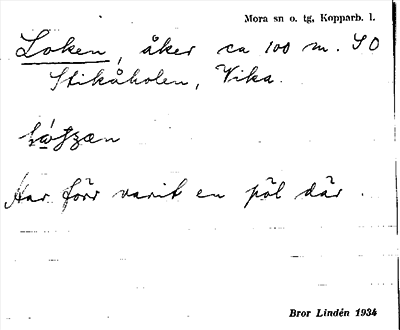 Mora sn o. tg, Kopparb. l.
Loken, åker ca 100 m. SO
Stikåholen, Vika.
Har förr varit en pöl där.
Bror Lindén 1934